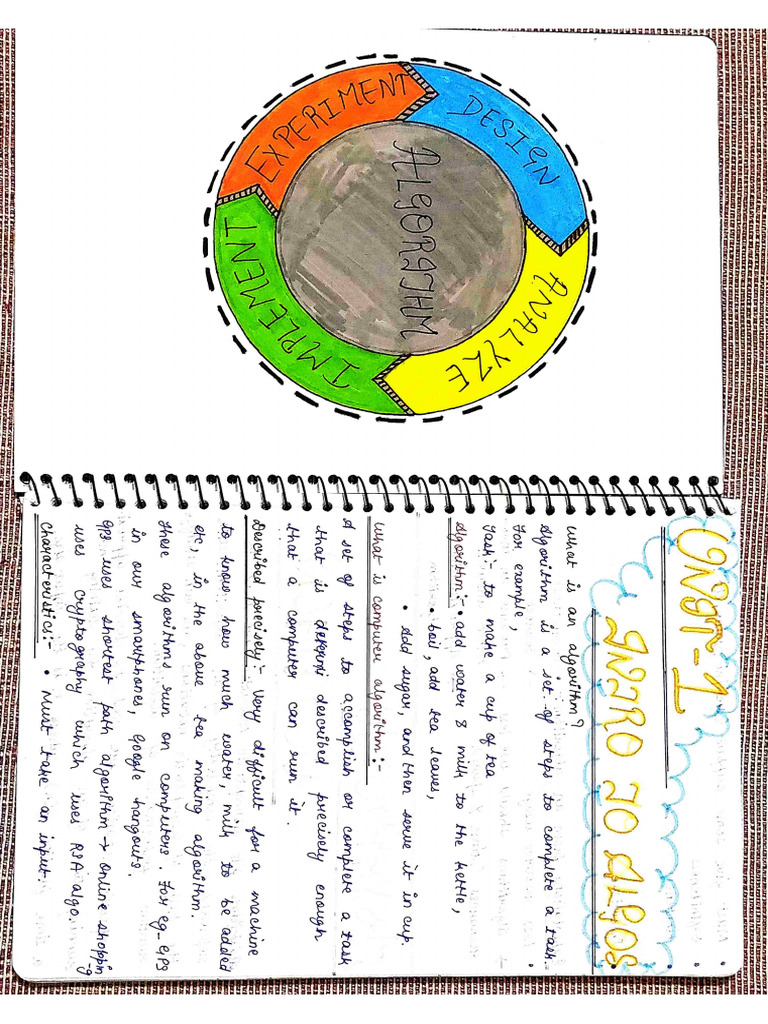 ALGORITHM
DESIGN
ANALYZE
IMPLEMENT
EXPERIMENT
UNIT-1
INTRO TO ALGOS
What is an algorithm?
Algorithm is a set of steps to complete a task.
For example,
Task:- to make a cup of tea
Algorithm:- • add water & milk to the kettle,
• boil, add tea leaves,
• Add sugar, and then serve it in cup.
What is computer algorithm:-
A set of steps to accomplish or complete a task
that is described precisely enough
that a computer can run it.
Described precisely:- Very difficult for a machine
to know how much water, milk to be added
etc, in the above tea making algorithm.
These algorithms run on computers. For eg- GPS
in our smartphones, Google hangouts.
GPS uses shortest path algorithm → Online shopping
uses cryptography which uses RSA algo.
Characteristics:- • Must take an input.